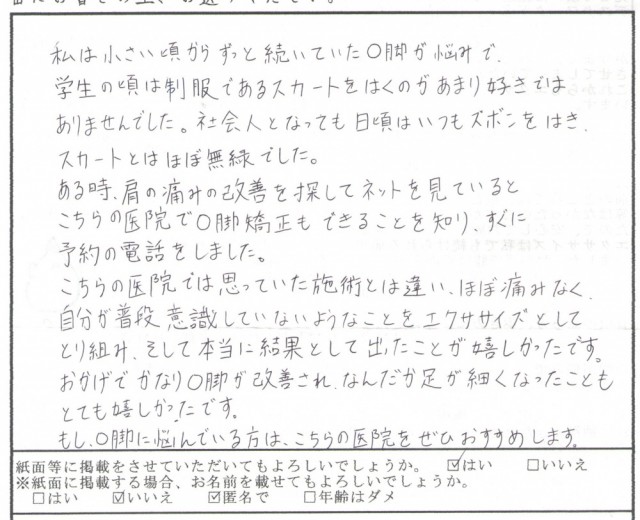 私は小さい頃からずっと続いていたO脚が悩みで、
学生の頃は制服であるスカートをはくのがあまり好きでは
ありませんでした。社会人となっても日頃はいつもズボンをはき、
スカートとはほぼ無縁でした。
ある時、肩の痛みの改善を探してネットを見ていると
こちらの医院でO脚矯正もできることを知り、すぐに
予約の電話をしました。
こちらの医院では思っていた施術とは違い、ほぼ痛みなく、
自分が普段意識していないようなことをエクササイズとして
とり組み、そして本当に結果として出たことが嬉しかったです。
おかげでかなりO脚が改善され、なんだか足が細くなったことも
とても嬉しかったです。
もし、O脚に悩んでいる方は、こちらの医院をぜひおすすめします。
紙面等に掲載をさせていただいてもよろしいでしょうか。 ☑はい □いいえ
※紙面に掲載する場合、お名前を載せてもよろしいでしょうか。
□はい ☑いいえ ☑匿名で □年齢はダメ